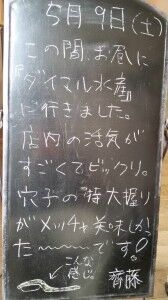 5月9日(土)
この間、お昼に
『ダイマル水産』
に行きました。
店内の活気が
すごくてビックリ。
穴子の"特大握り
がメッチャ美味しかっ
た〜〜〜〜です!
こんな
感じ
齊藤